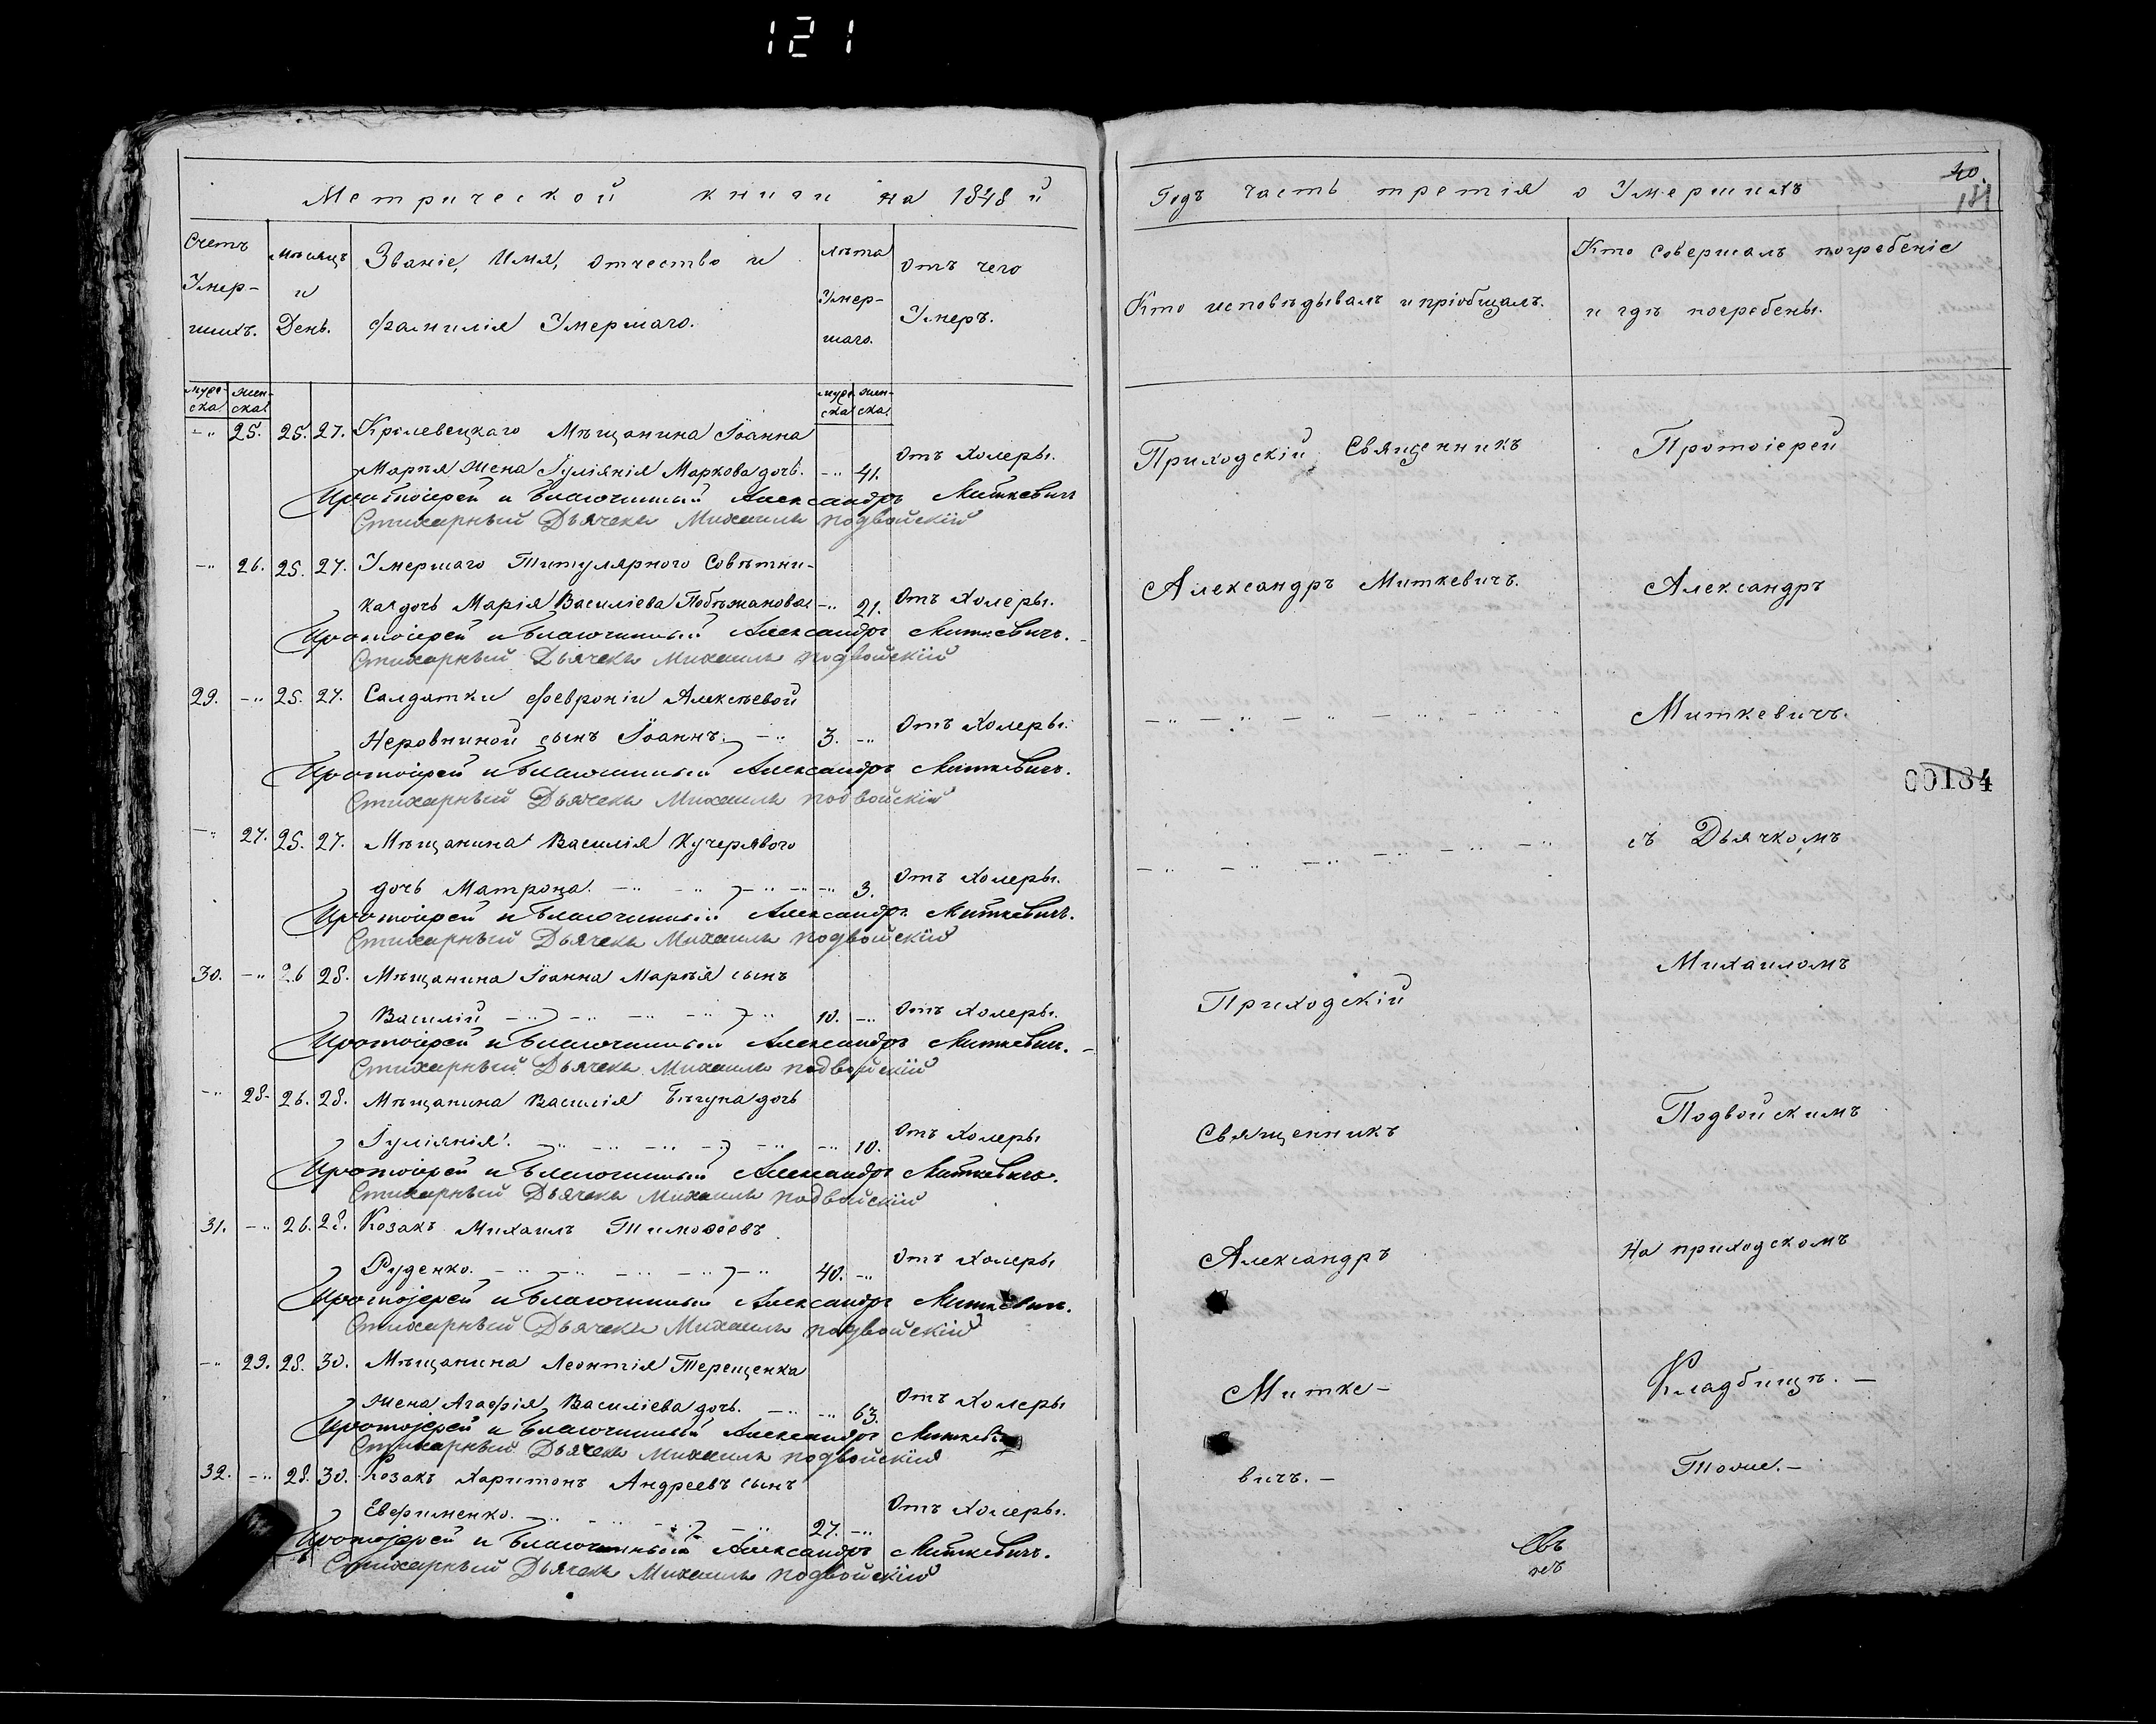 121
Метрической книги на 1848 й
Счетъ Умер-шихъ.
Мѣсяцъ и День.
Званіе, Имя, отчество и фамилія Умершаго.
лѣта Умер-шаго.
Отъ чего Умеръ.
муже-ска
жен-ска
муже-ска
жен-ска
-„ 25. 25. 27. Кролевецкаго Мѣщанина Іоанна
Марѣя Жена Іуліянія Маркова дочь. -„ 41. Отъ Холеры.
Протоіерей и Благочинный Александръ Миткевичъ
Стихарный Дьячекъ Михаилъ подвойскій
-„ 26. 25. 27. Умершаго Титулярного Совѣтни-
ка дочь Марія Василіева -„ 21. Отъ Холеры.
Протоіерей и Благочинный Александръ Миткевичъ.
Стихарный Дьячекъ Михаилъ подвойскій
29. -„ 25. 27. Салдатки Февроніи Алексѣевой
Неровниной сынъ Іоаннъ. -„ 3. -„ Отъ Холеры.
Протоіерей и Благочинный Александръ Миткевичъ.
Стихарный Дьячекъ Михаилъ подвойскій
-„ 27. 25. 27. Мѣщанина Василія Кучерявого
дочь Матрона. -„ -„ -„ -„ -„ 3. Отъ Холеры.
Протоіерей и Благочинный Александръ Миткевичъ.
Стихарный Дьячекъ Михаилъ подвойскій
30. -„ 26 28. Мѣщанина Іоанна Марѣя сынъ
Василій -„ -„ -„ -„ -„ 10. -„ Отъ Холеры.
Протоіерей и Благочинный Александръ Миткевичъ.
Стихарный Дьячекъ Михаилъ подвойскій
-„ 28. 26. 28. Мѣщанина Василія Бѣгуна дочь
Іуліянія. -„ -„ -„ -„ -„ -„ 10. Отъ Холеры
Протоіерей и Благочинный Александръ Миткевичъ.
Стихарный Дьячекъ Михаилъ подвойскій
31. -„ 26. 28. Козакъ Михаилъ Тимоѳеевъ
Руденко. -„ -„ -„ -„ -„ 40. -„ Отъ Холеры
Протоіерей и Благочинный Александръ Миткевичъ.
Стихарный Дьячекъ Михаилъ подвойскій
-„ 29. 28. 30. Мѣщанина Леонтія Терещенка
Жена Агафія Василіева дочь. -„ -„ 63. Отъ Холеры
Протоіерей и Благочинный Александръ
Стихарный Дьячекъ Михаилъ подвойскій
32. -„ 28. 30. Козакъ Харитонъ Андреевъ сынъ
Евфименко. -„ -„ -„ -„ 27. -„ Отъ Холеры.
Протоіерей и Благочинный Александръ Миткевичъ.
Стихарный Дьячекъ Михаилъ подвойскій
40.
181
Годъ часть третія о Умершихъ
Кто исповѣдывалъ и пріобщалъ.
Кто совершалъ погребеніе
и гдѣ погребены.
Приходскій Священникъ
Александръ Миткевичъ.
-„ -„ -„ -„ -„ -„
-„ -„ -„ -„ -„ -„
Приходскій
Священникъ
Александръ
Митке-
вичъ. -
Протоіерей
Александръ
Миткевичъ.
00184
съ Дьячкомъ
Михаиломъ
Подвойскимъ
На приходскомъ
Кладбищѣ. -